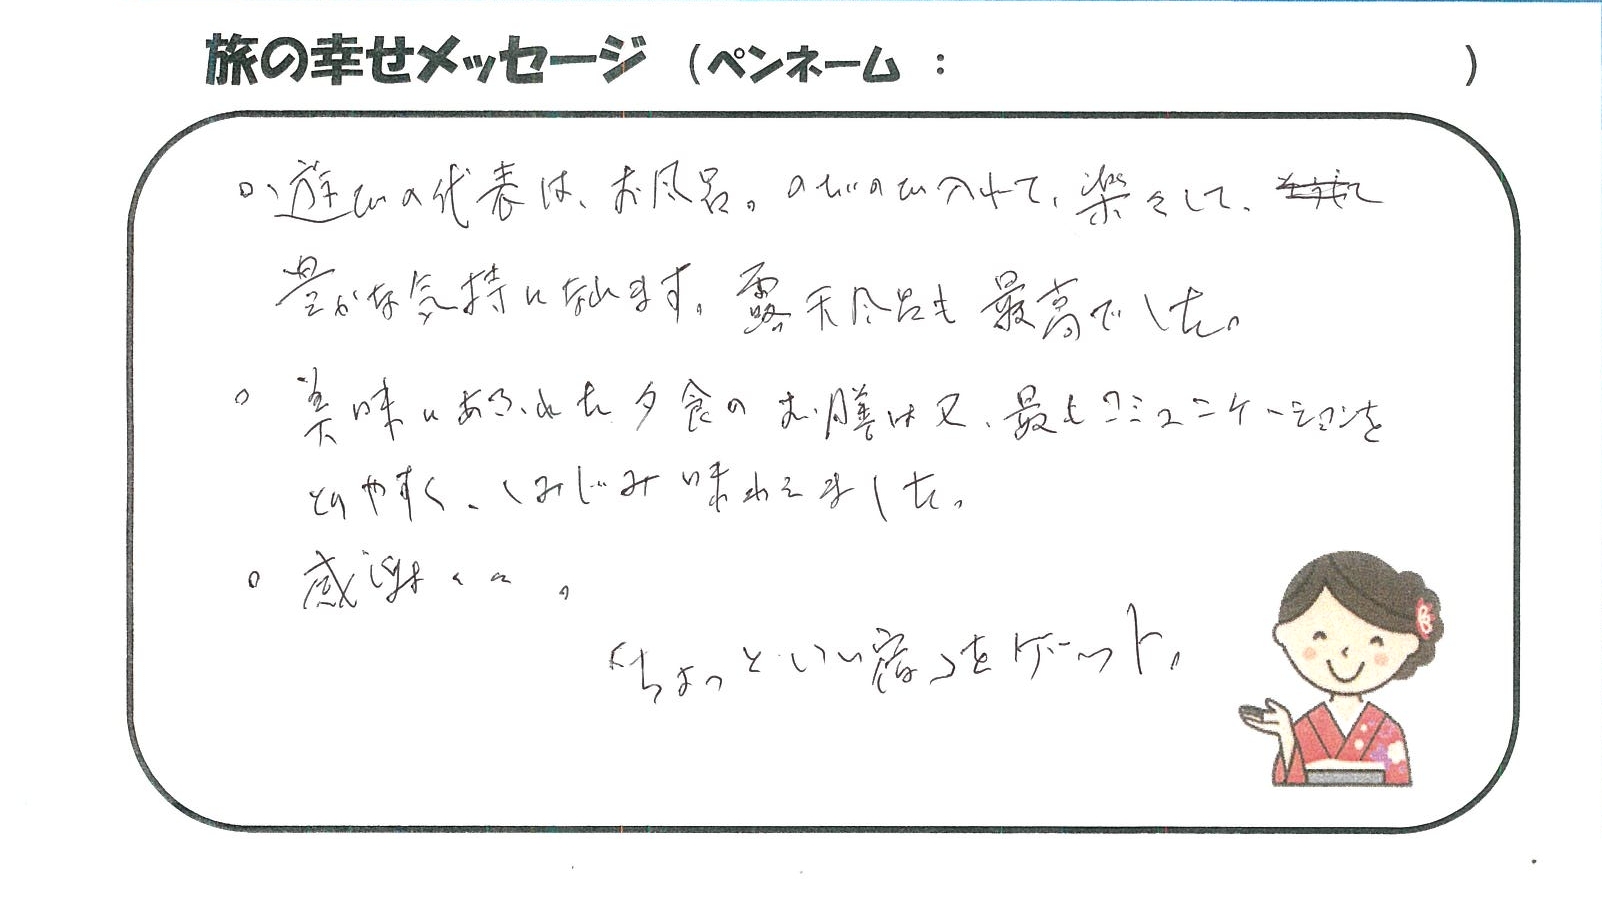 旅の幸せメッセージ (ペンネーム: )
○、遊びの代表は、お風呂。のびのび入れて、楽々して、
豊かな気持になれます。露天風呂も最高でした。
○ 美味にあふれた夕食のお膳は又、最もコミュニケーションを
とりやすく、しみじみ味わえました。
○ 感謝く 。
「ちょっといい宿」をゲット。